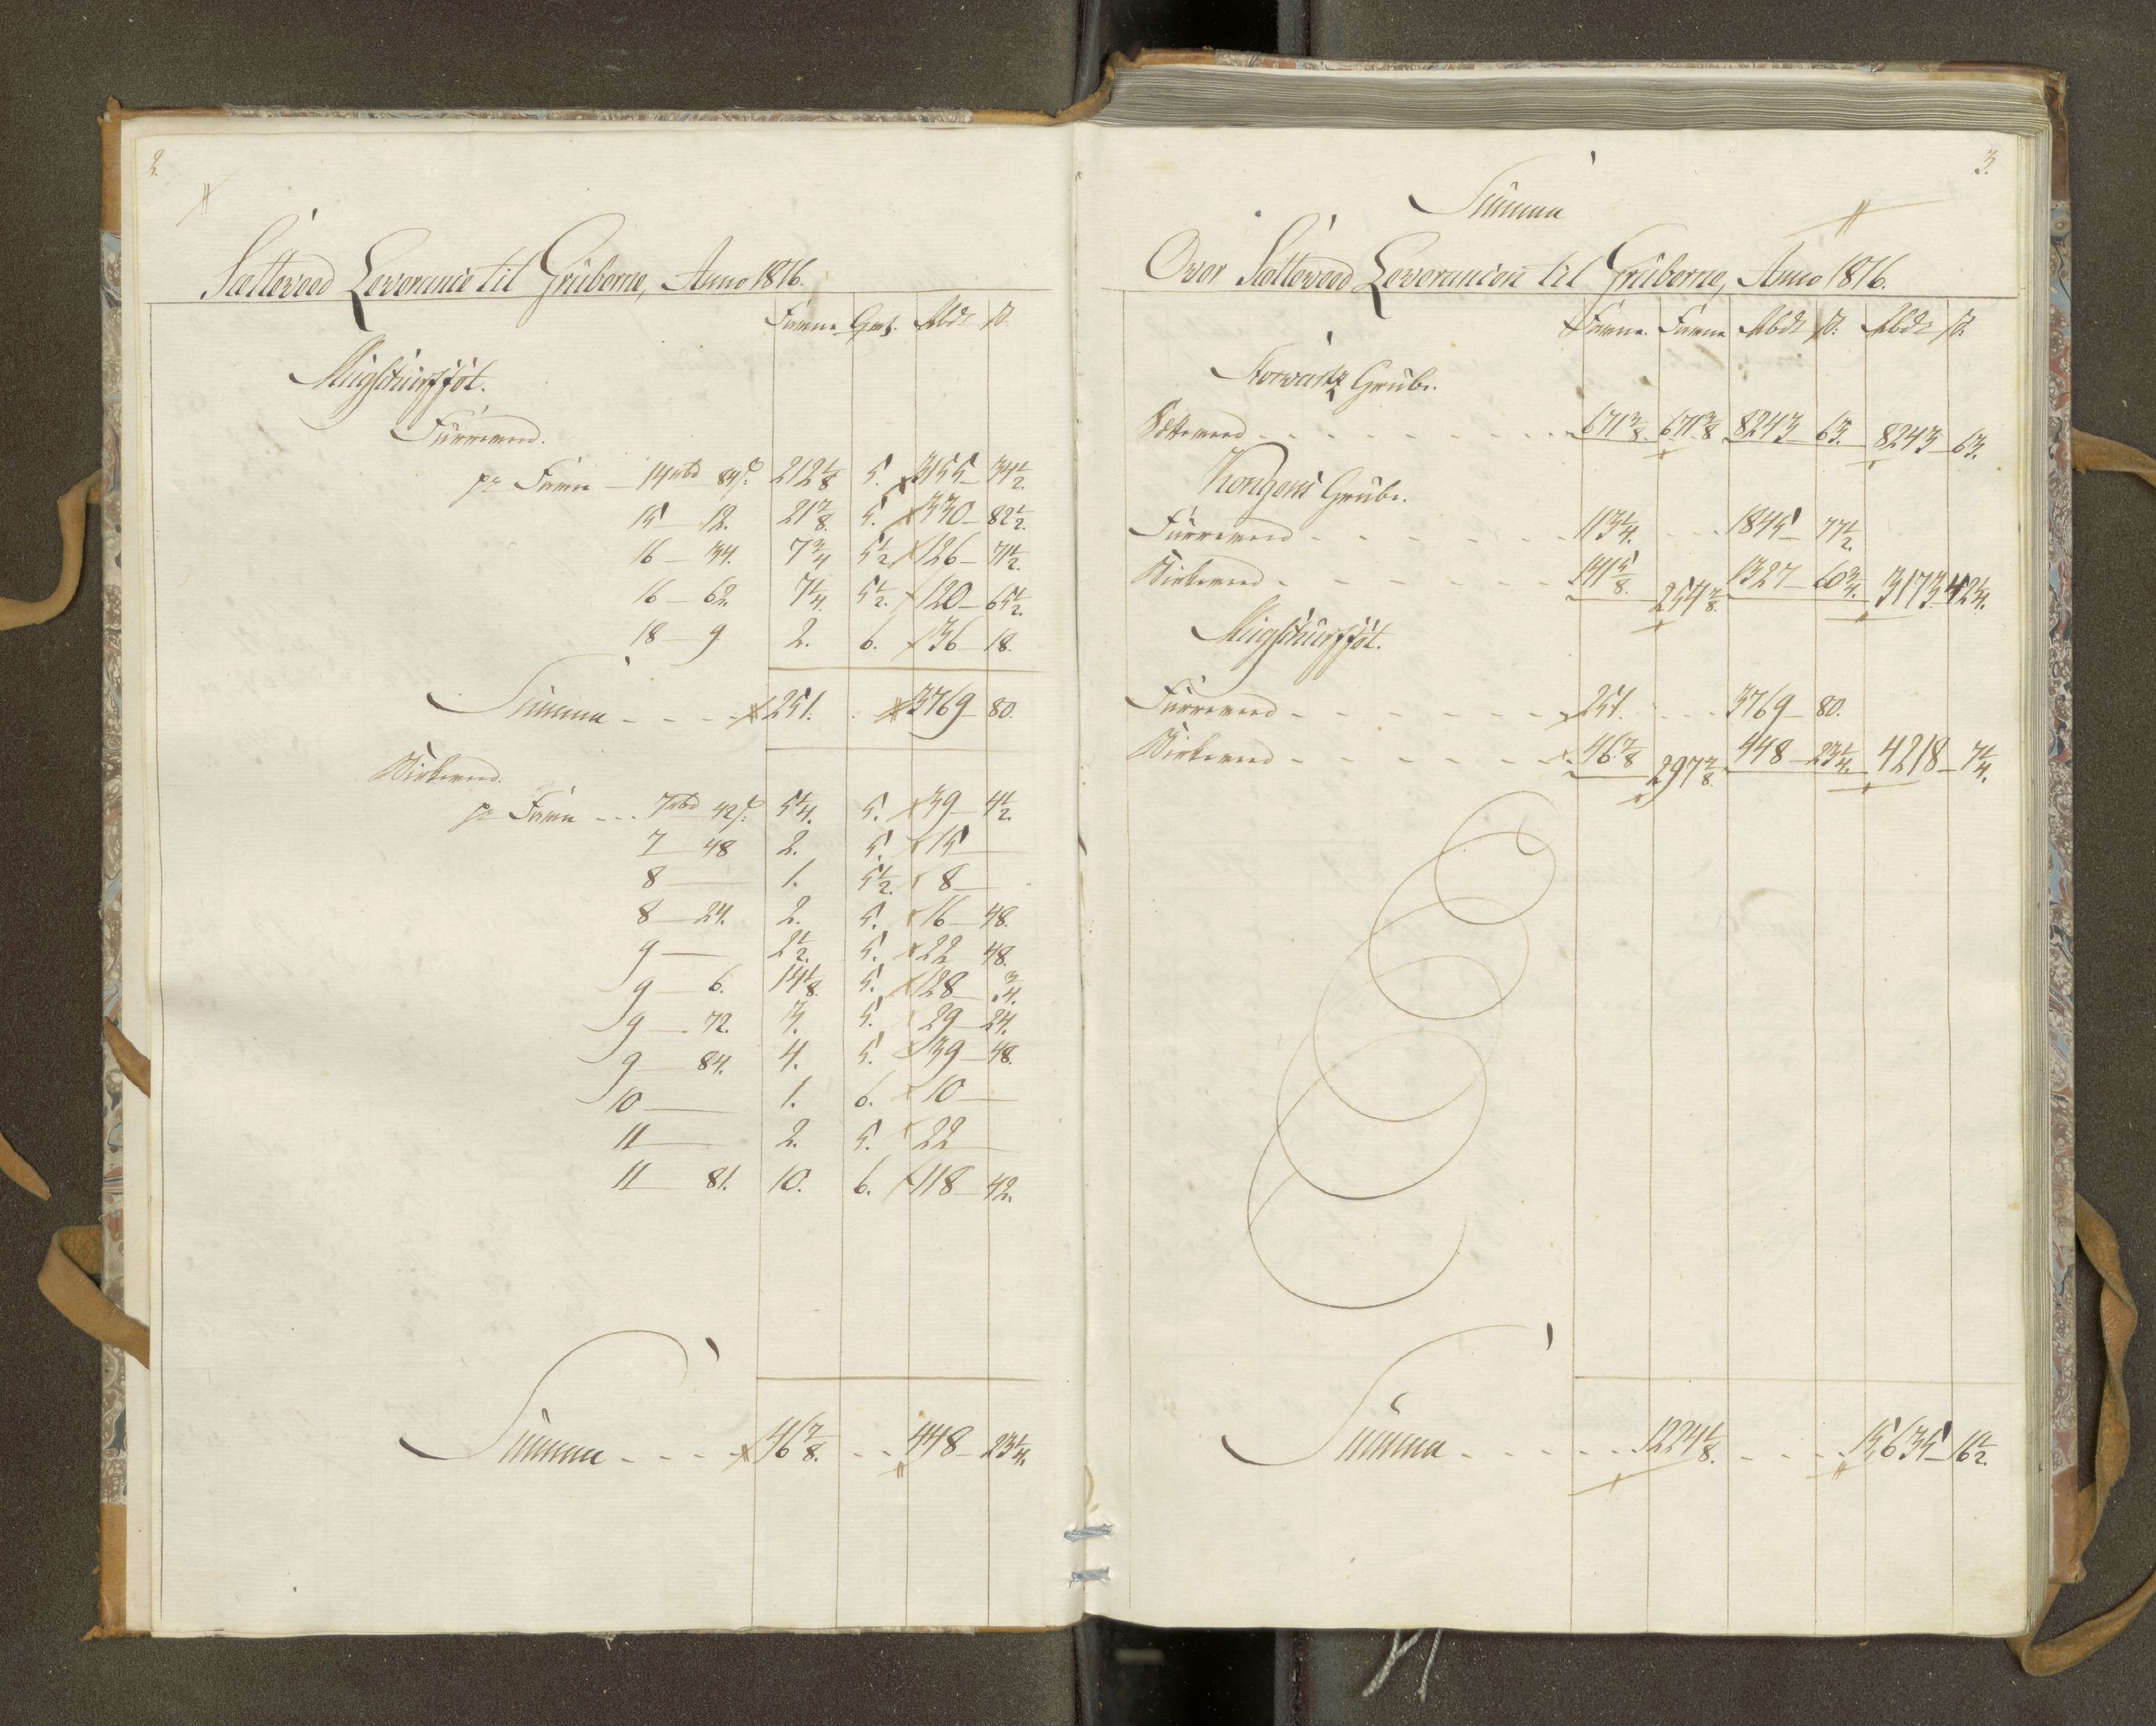 2.
Sætteveed Leverance til Gruberne, Anno 1816.
Favne Qvt. Rbdr ß.
Mugschurffjot.
Furreveed.
pr Favn – 14 rbd 84 ß. 212 1/8 5. 3155 – 34 1/2.
15 – 12. 21 7/8. 5. 330 – 82 1/2.
16 – 34. 7 3/4 5 1/2 126 – 71 1/2.
16 – 62. 7 1/4. 5 1/2. 120 – 65 1/2.
18 – 9. 2. 6. 36 – 18.
Summa - - - - 251. 3769 – 80.
Birkeveed.
pr Favn - - - 7 rbd 42 ß. 5 1/4. 5. 39 – 4 1/2.
7 – 48 2. 5. 15 –
8 – 1. 5 1/2. 8 –
8 – 24. 2. 5. 16 – 48.
9 – 2 1/2. 5. 22 – 48.
9 – 6. 14 1/8. 5. 128 – 3/4.
9 – 72. 3. 5. 29 – 24.
9 – 84. 4. 5. 39 – 48.
10 – 1. 6. 10 –
11 – 2. 5. 22 –
11 – 81. 10. 6. 118 – 42.
Summa - - - - 46 7/8. - - 448 – 23 1/4.
3.
Summa
Over Sætteveed Leverancen til Gruberne, Anno 1816.
Favne. Favne Rbdr ß. Rbdr ß.
Storwartz Grube.
Sætteveed - - - - - - - - - - 671 3/8. 671 3/8 8243 – 63. 8243 – 63.
Kongens Grube.
Furreveed - - - - - - - 113 1/4. - - - 1845 – 77 1/2.
Birkeveed - - - - - - - 141 5/8. 254 7/8. 1327 – 60 3/4. 3173 – 42 1/4.
Mugschurffjot.
Furreveed - - - - - - - 251. - - - 3769 – 80.
Birkeveed - - - - - - - 46 7/8 297 7/8. 448 – 23 1/4. 4218 – 7 1/4.
Summa - - - - - - 1224 1/8. - - - - 15635 – 16 1/2.